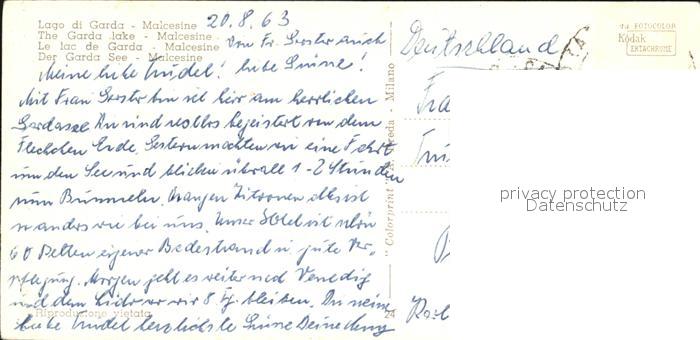 Lago di Garda - Malcesine 20.8.63
The Garda lake - Malcesine
Le lac de Garda - Malcesine Von Fr. auch
Der Garda See - Malcesine liebe Grüsse!
Meine liebe Trudel!
Mit Frau bin ich hier am herrlichen
Gardasee. Wir sind restlos begeistert von dem
Fleckchen Erde. Gestern machten wir eine Fahrt
um den See und blieben überall 1-2 Stunden
zum Bummeln. Orangen Zitronen alles ist
so anders wie bei uns. Unser Hotel ist schön
60 Betten eigener Badestrand u. gute Ver-
pflegung. Morgen geht es weiter nach Venedig
und dem Lido wo wir 8 Tg. bleiben. Du meine
liebe Trudel herzlichste Grüsse Deine
Riproduzione vietata
"Colorprint" - Milano
24
Deutschland
Fra
FOTOCOLOR
Kodak
EKTACHROME
privacy protection
Datenschutz